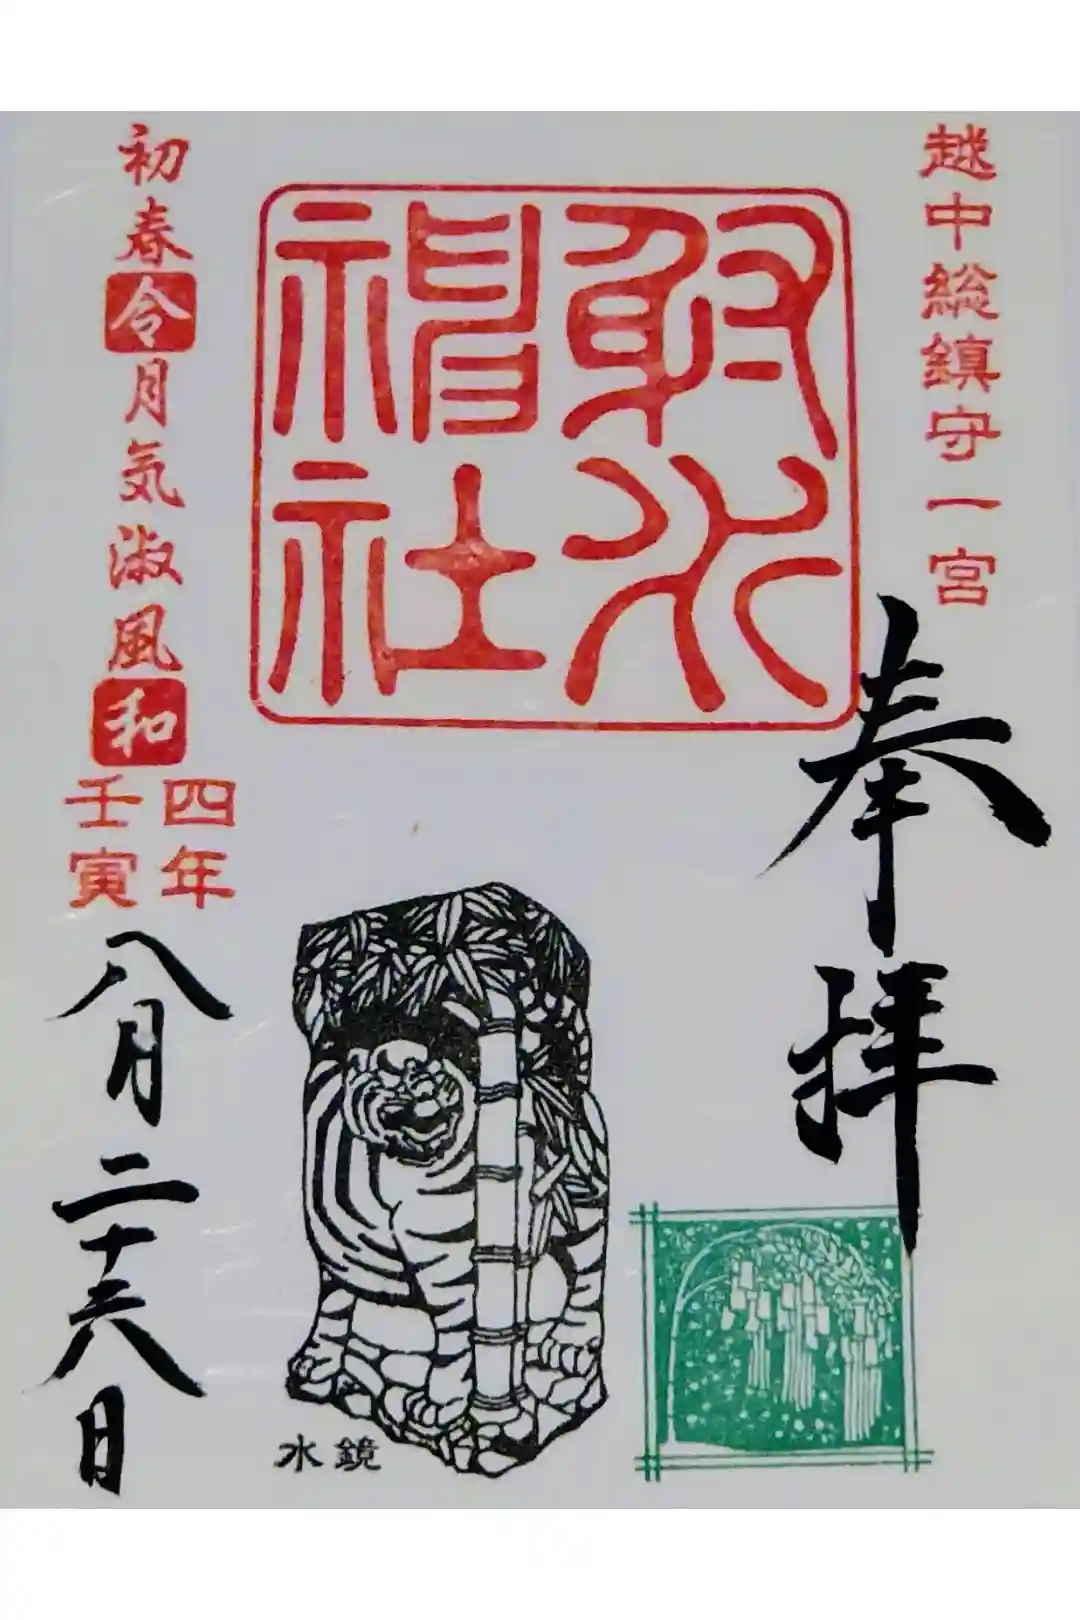 越中総鎮守一宮
奉拝
射水
神社
水鏡
初春令月気淑風和
四年
壬寅
八月二十六日